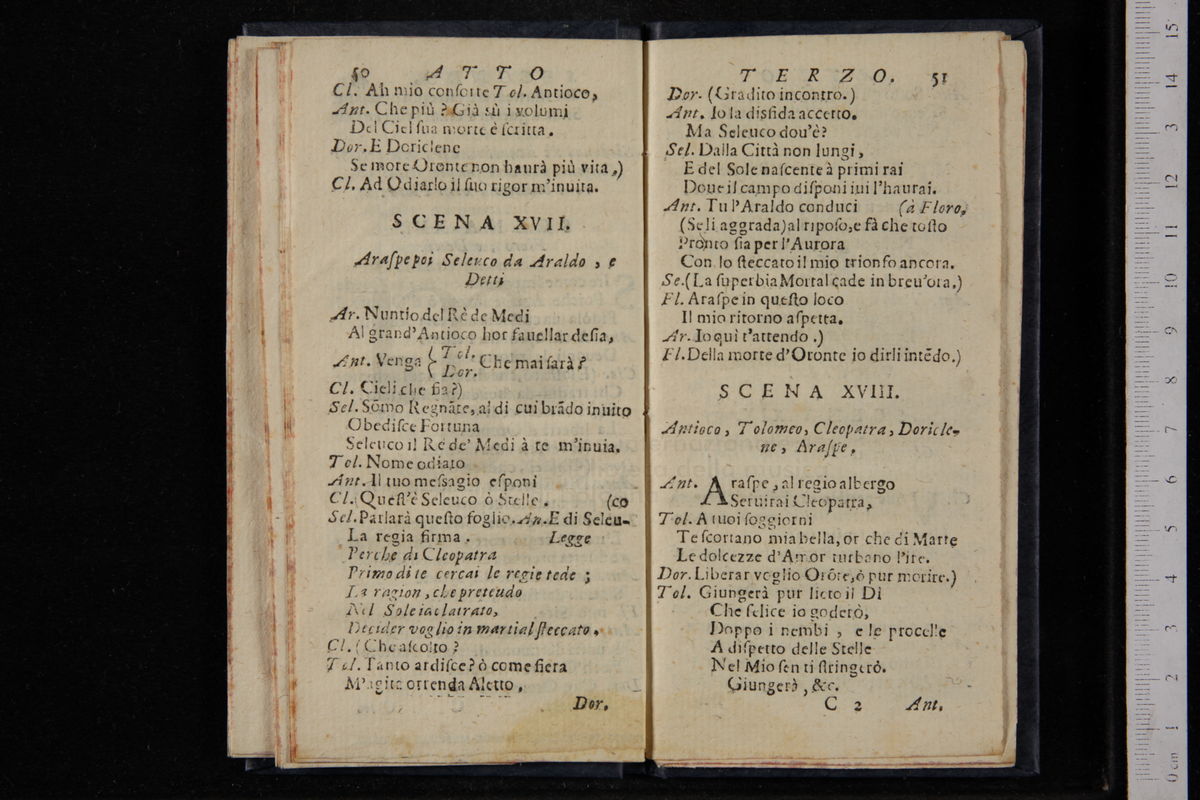 50 ATTO
Cl. Ah mio conſorte Tol. Antioco,
Ant. Che più? Già sù i volumi
Del Ciel ſua morte è ſcritta.
Dor. E Doriclene
Se more Oronte non haurà più vita,)
Cl. Ad Odiarlo il ſuo rigor m'inuita.
SCENA XVII.
Araſpe poi Seleuco da Araldo, e
Detti
Ar. Nuntio del Rè de Medi
Al grand'Antioco hor fauellar deſia,
Ant. Venga { Tol. Dor. Che mai ſarà?
Cl. Cieli che fia?)
Sel. Sõmo Regnãte, al di cui brãdo inuito
Obediſce Fortuna
Seleuco il Rè de' Medi à te m'inuia.
Tol. Nome odiato
Ant. Il tuo meſsagio eſponi
Cl. Queſt'è Seleuco ò Stelle. (co
Sel. Parlarà queſto foglio. An. E di Seleu-
La regia firma. Legge
Perche di Cleopatra
Primo di te cercai le regie tede;
La ragion, che pretendo
Nel Sole
Decider voglio in martial ſteccato.
Cl. (Che aſcolto?
Tol. Tanto ardiſce? ò come fiera
M'agita orrenda Aletto,
Dor.
TERZO. 51
Dor. (Gradito incontro.)
Ant. Io la disfida accetto.
Ma Seleuco dou'è?
Sel. Dalla Città non lungi,
E del Sole naſcente à primi rai
Doue il campo diſponi iui l'haurai.
Ant. Tu l'Araldo conduci (à Floro,
(Se li aggrada) al ripoſo, e fà che toſto
Pronto ſia per l'Aurora
Con lo ſteccato il mio trionfo ancora.
Se. (La ſuperbia Mortal cade in breu'ora.)
Fl. Araſpe in queſto loco
Il mio ritorno aſpetta.
Ar. Io quì t'attendo.)
Fl. Della morte d'Oronte io dirli intẽdo.)
SCENA XVIII.
Antioco, Tolomeo, Cleopatra, Doricle-
ne, Araſpe.
Ant. Araſpe, al regio albergo
Seruirai Cleopatra,
Tol. A tuoi ſoggiorni
Te ſcortano mia bella, or che di Marte
Le dolcezze d'Amor turbano l'ire.
Dor. Liberar voglio Orõte, ò pur morire.)
Tol. Giungerà pur lieto il Dì
Che felice io goderò,
Doppo i nembi, e le procelle
A diſpetto delle Stelle
Nel Mio ſen ti ſtringerò.
Giungerà, &c.
C 2 Ant.
15
14
13
12
11
10
9
8
7
6
5
4
3
2
1
0 cm